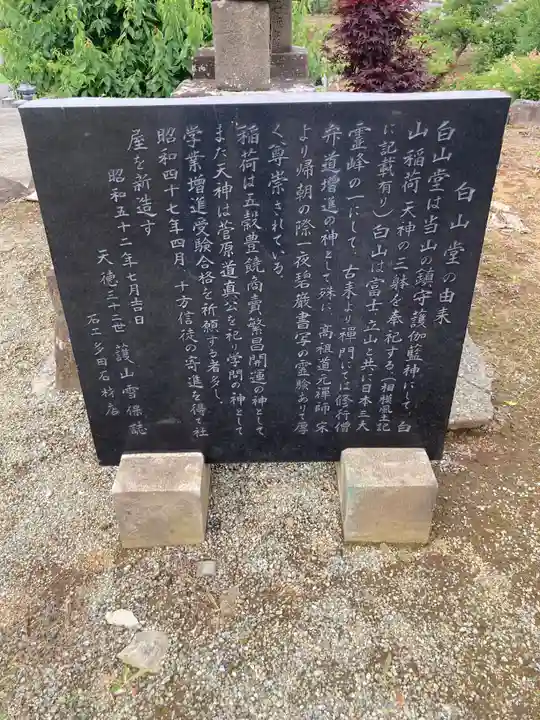 白山堂の由来
白山堂は当山の鎮守護伽藍神にして、白
山稲荷天神の三躰を奉祀する。(相模風土記
に記載有り)白山は富士、立山と共に日本三大
霊峰の一にして、古来より禅門にては修行僧
弁道増進の神として殊に、高祖道元禅師宋
より帰朝の際一夜碧巌書写の霊験ありて厚
く尊崇されている。
稲荷は五穀豊饒商売繁昌開運の神として
また天神は菅原道真公を祀り学問の神として
学業増進受験合格を祈願する者多し。
昭和四十七年四月、十方信徒の寄進を得て社
屋を新造す
昭和五十二年七月吉日
天徳三十二世 護山雪保誌
石工多田石材店